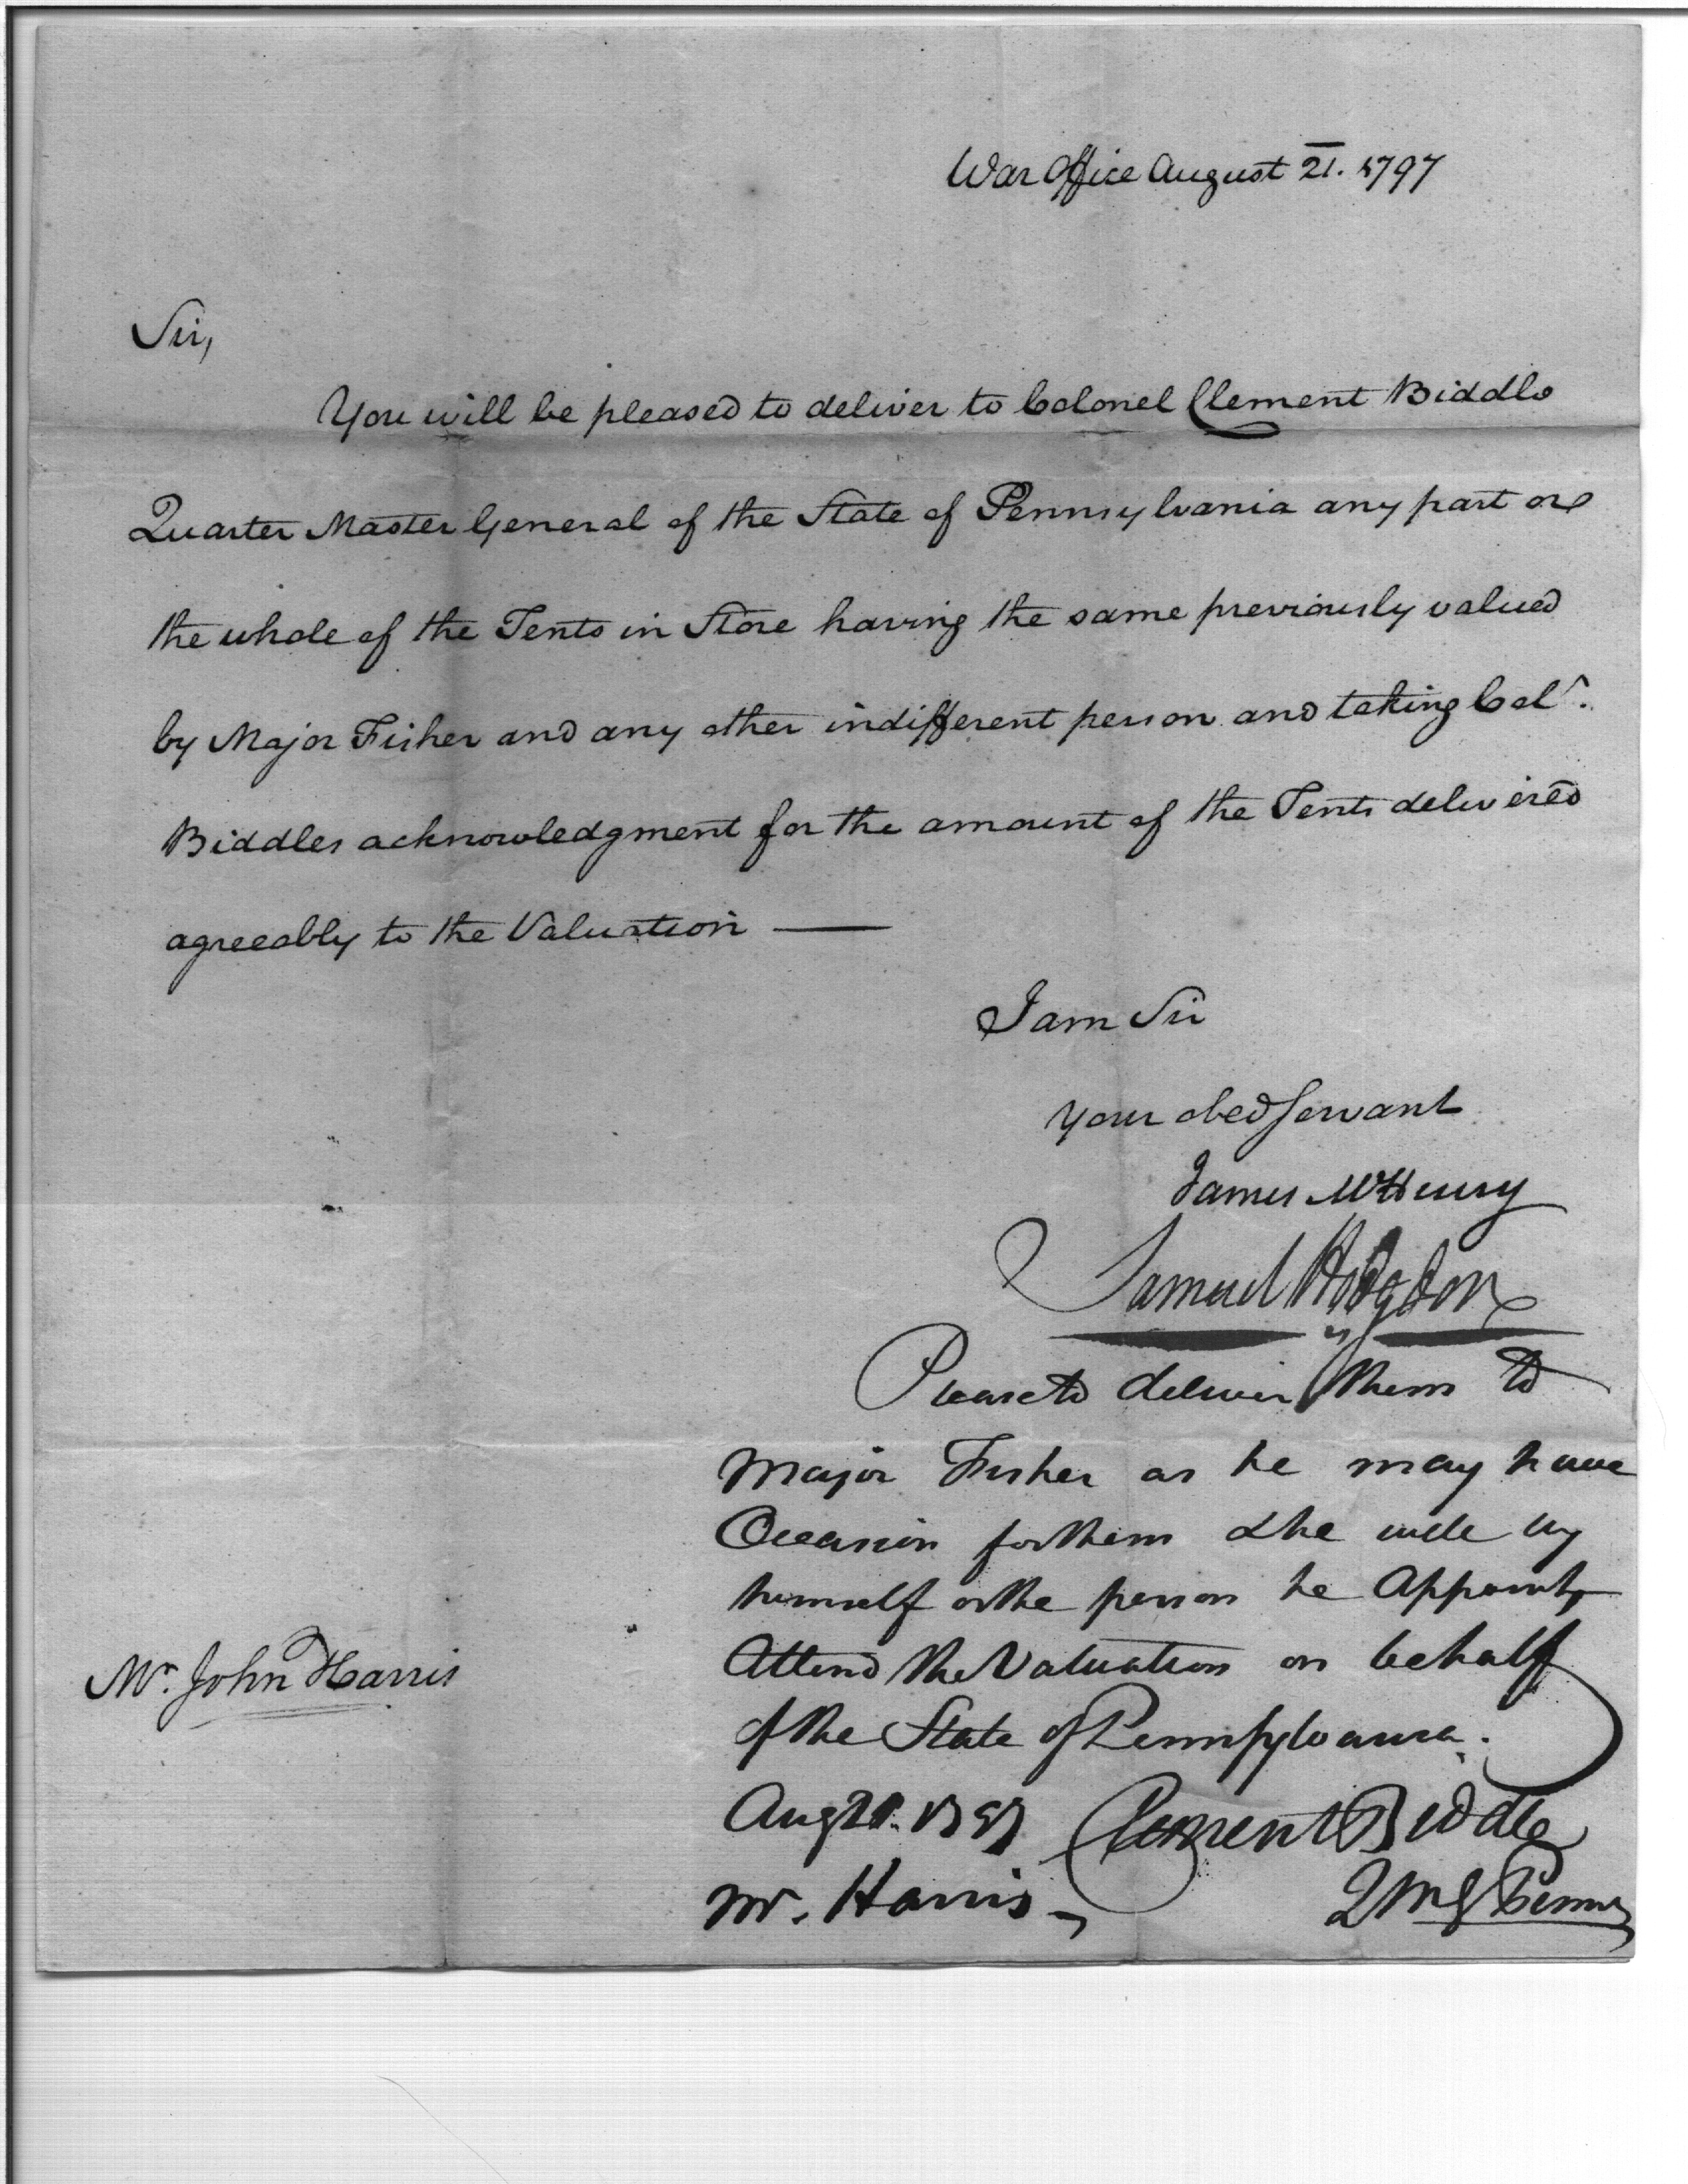 War Office August 21. 1797
Sir,
You will be pleased to deliver to Colonel Clement Biddle
Quarter Master General of the State of Pennsylvania any part or
the whole of the Tents in Store having the same previously valued
by Major Fisher and any other indifferent person and taking Col.
Biddles acknowledgment for the amount of the Tents delivered
agreeably to the Valuation —
I am Sir
your obed servant
James McHenry
Samuel Hodgdon
Please to deliver them to
Major Fisher as he may have
Occasion for them & he will by
himself or the person he Appoints
Attend the Valuation on behalf
of the State of Pennsylvania.
Aug 21. 1797 Clement Biddle
Mr. Harris — QMG Penna
Mr. John Harris